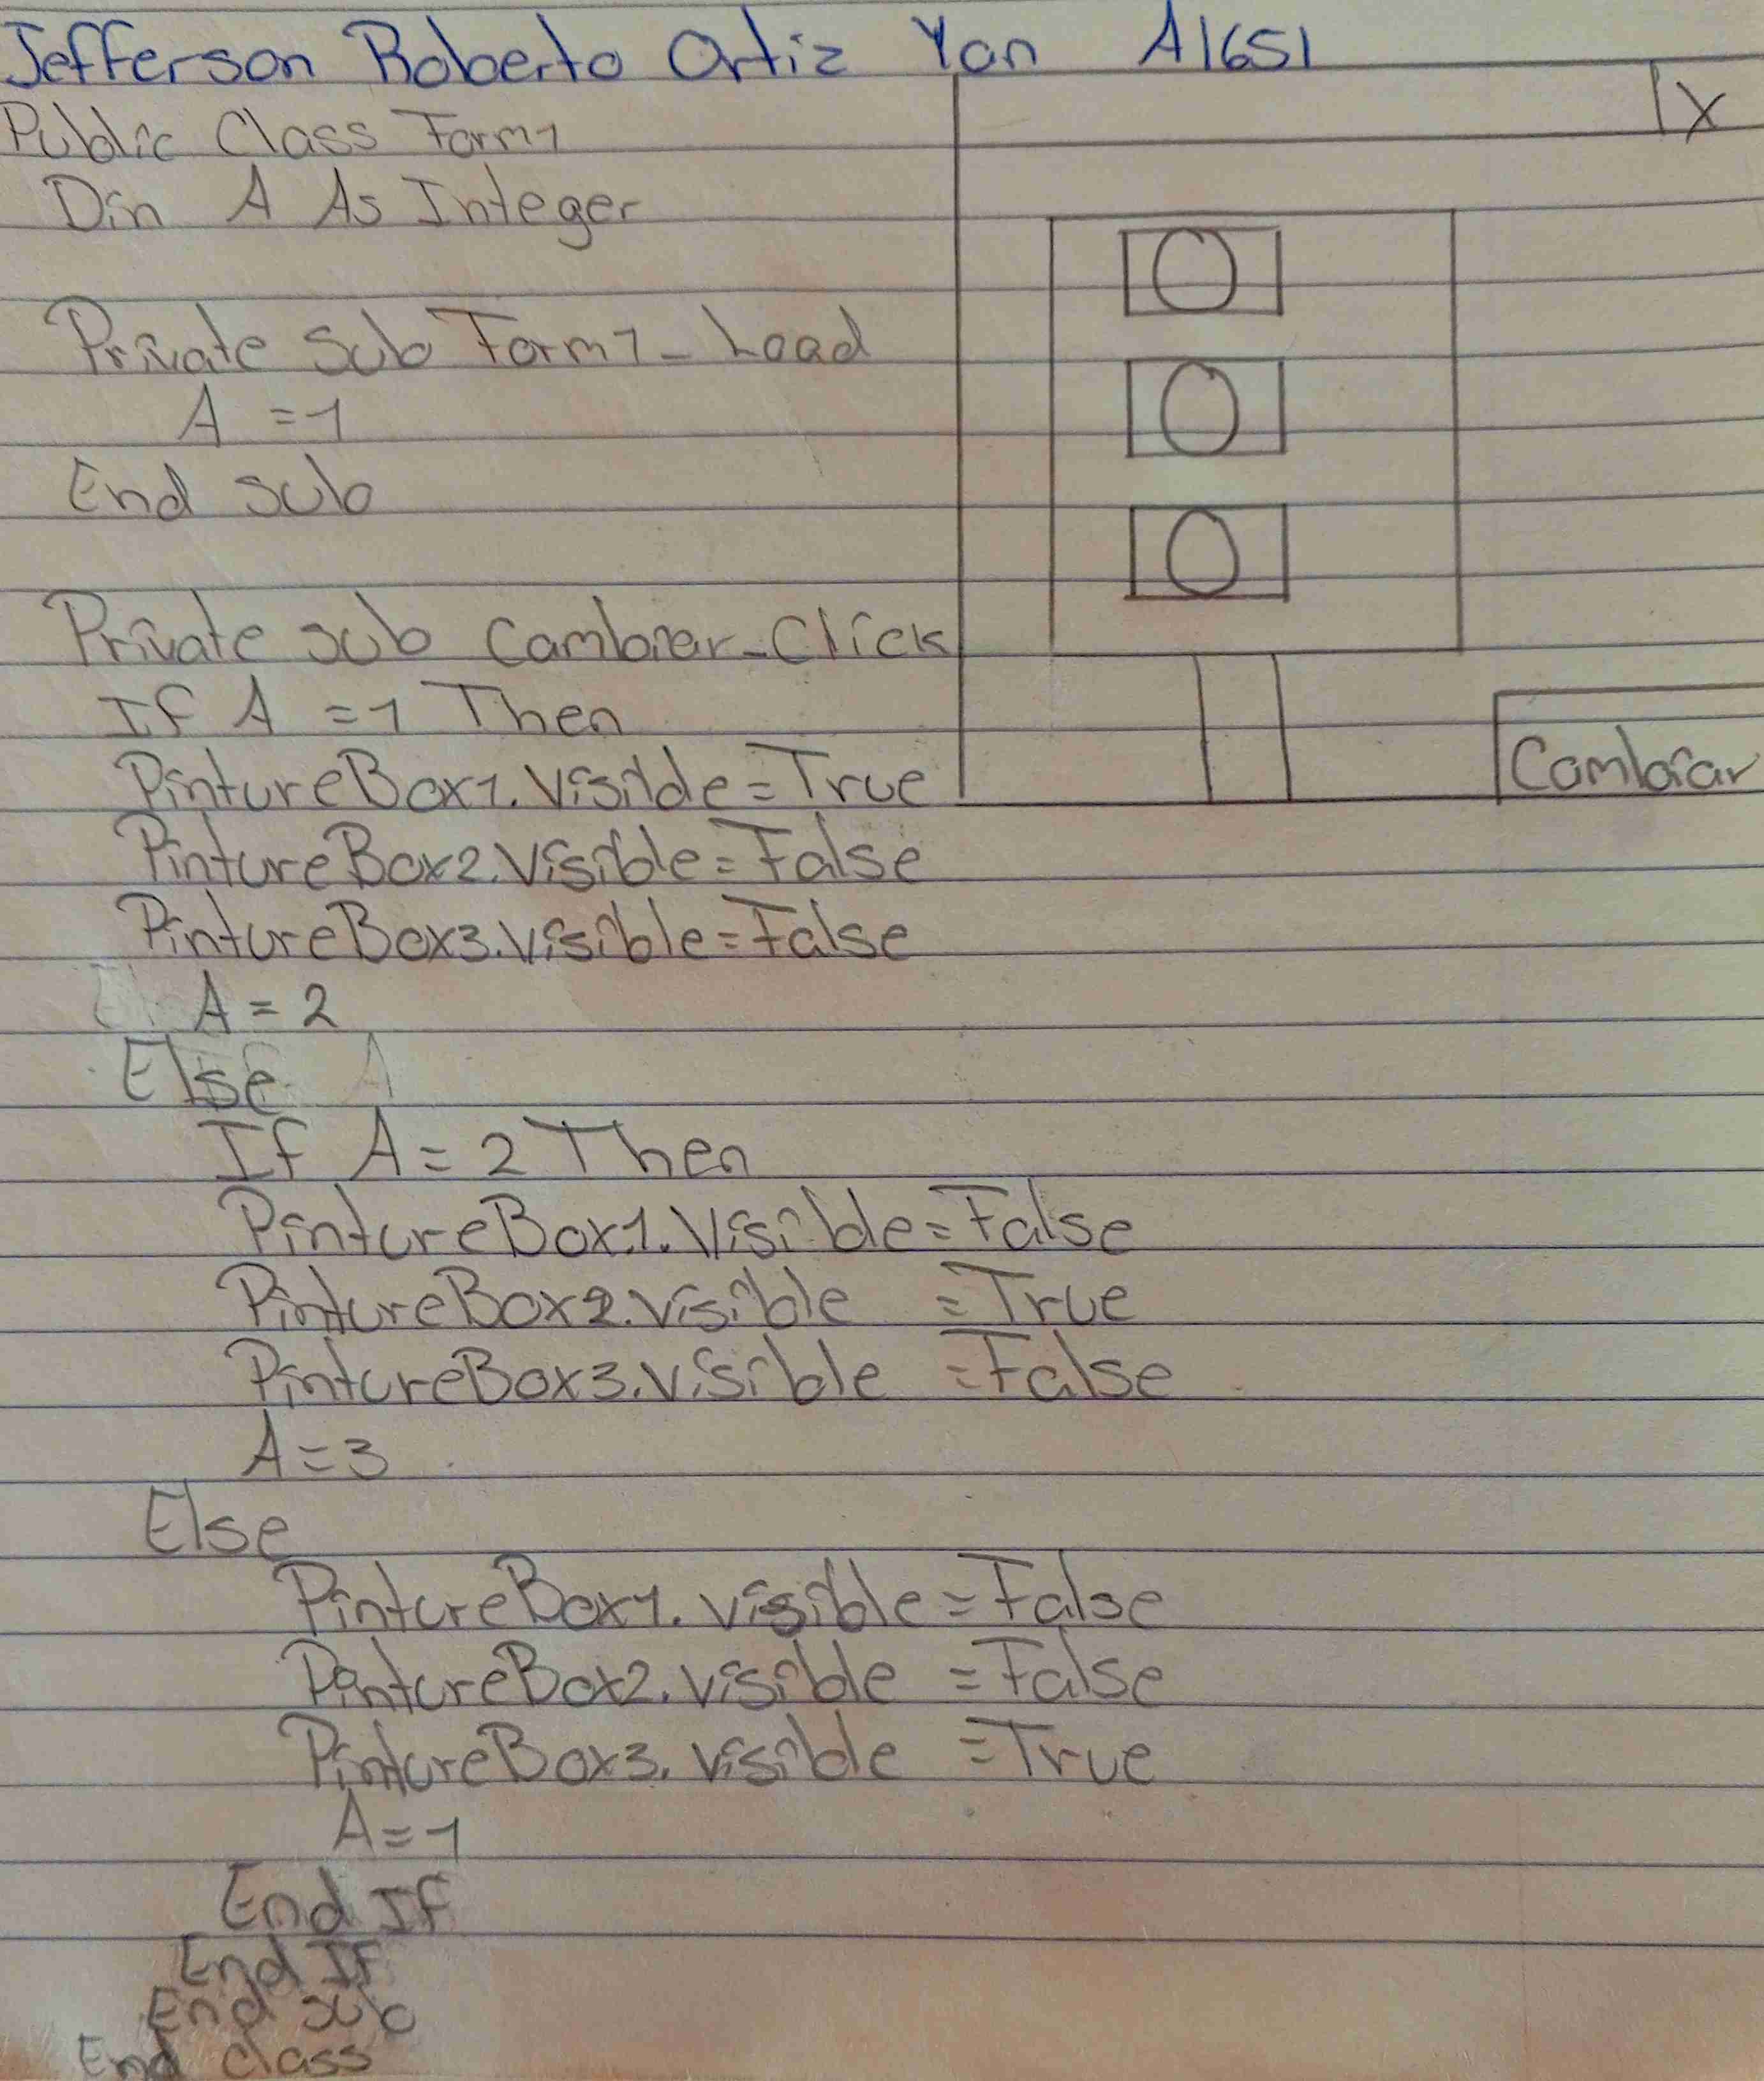 Jefferson Roberto Ortiz Yan A1651
X
Public Class Form1
Din A As Integer
Private Sub Form1_Load
A = 1
End Sub
Private sub Cambiar_Click
If A = 1 Then
PintureBox1.Visilde = True
PintureBox2.Visible = False
PintureBox3.Visible = False
A = 2
Else
If A = 2 Then
PintureBox1.Visible = False
PintureBox2.visible = True
PintureBox3.visible = False
A = 3
Else
PintureBox1.visible = False
PintureBox2.visible = False
PintureBox3.visible = True
A = 1
End If
End If
End sub
End class
Cambiar